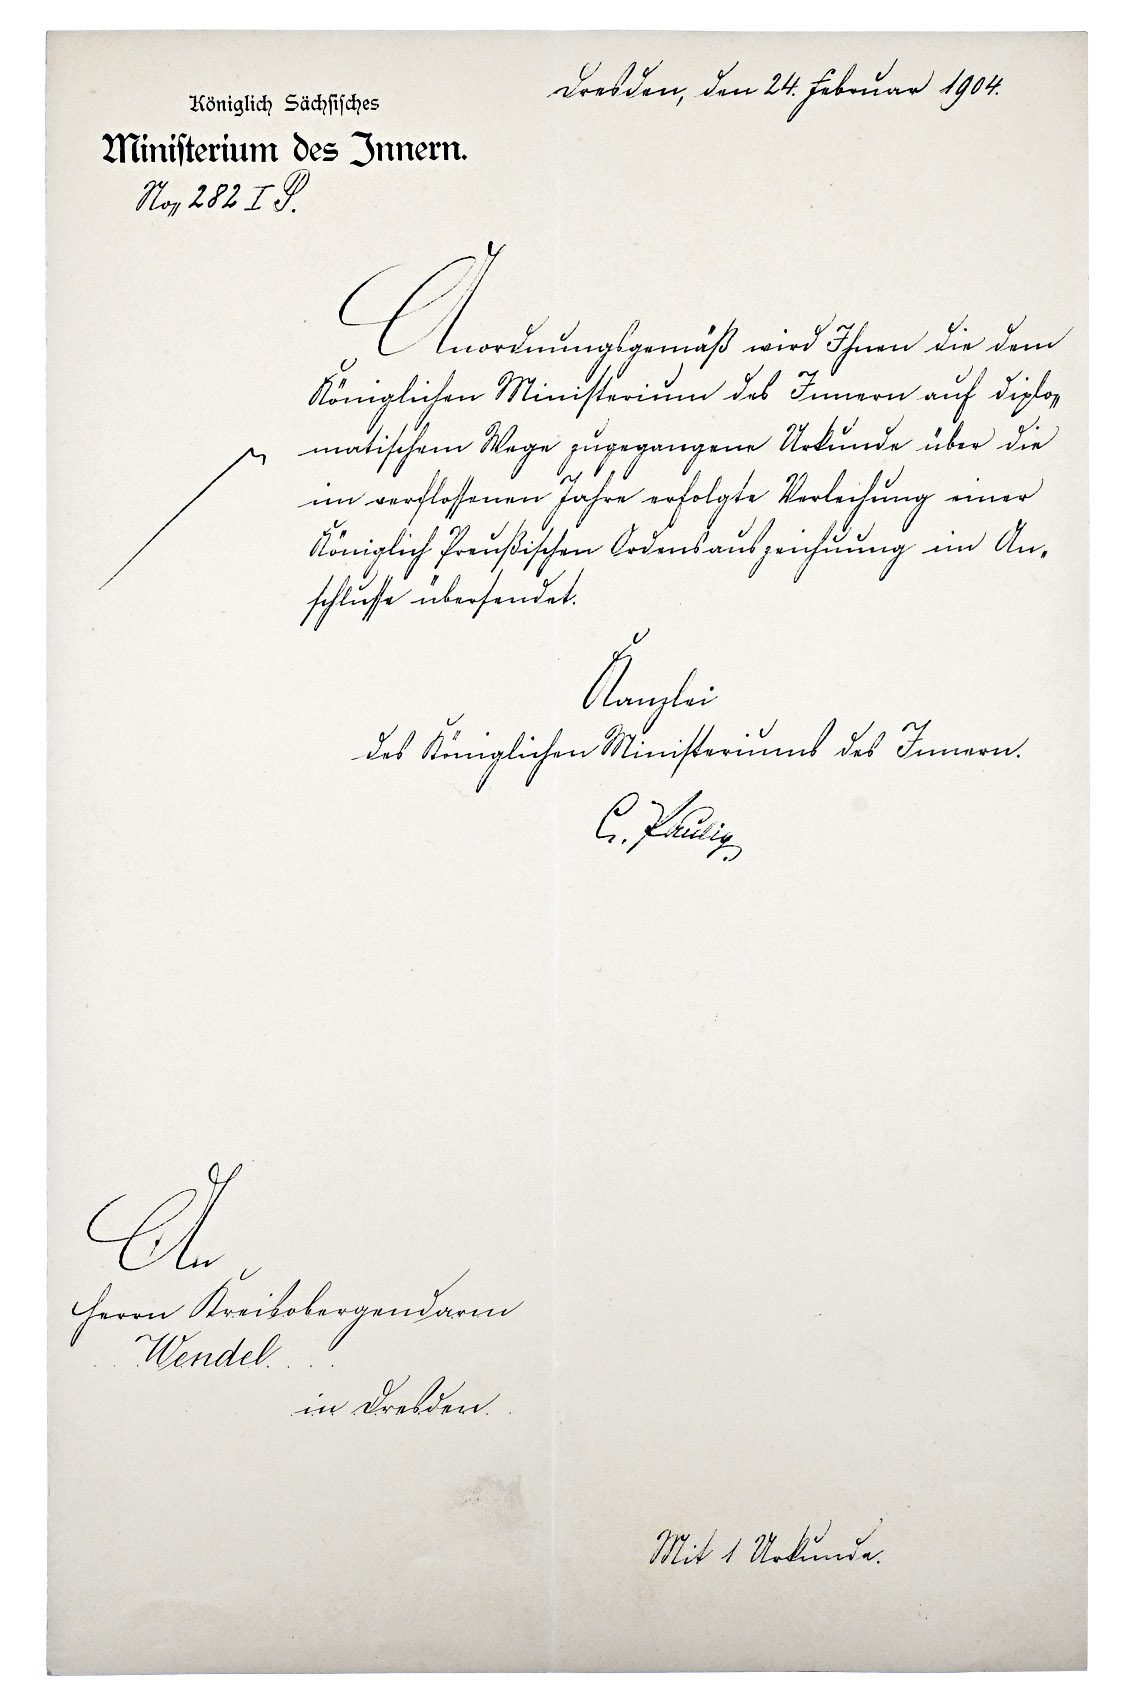 Dresden, den 24. Februar 1904.
Königlich Sächsisches
Ministerium des Innern.
No 282 I P.
Anordnungsgemäß wird Ihnen die dem
Königlichen Ministerium des Innern auf diplo-
matischem Wege zugegangene Urkunde über die
im verflossenen Jahre erfolgte Verleihung einer
Königlich Preußischen Ordensauszeichnung im An-
schlusse übersendet.
Kanzlei
des Königlichen Ministeriums des Innern.
C. Paulig
An
Herrn Kreisobergendarm
Wendel
in Dresden.
Mit 1 Urkunde.